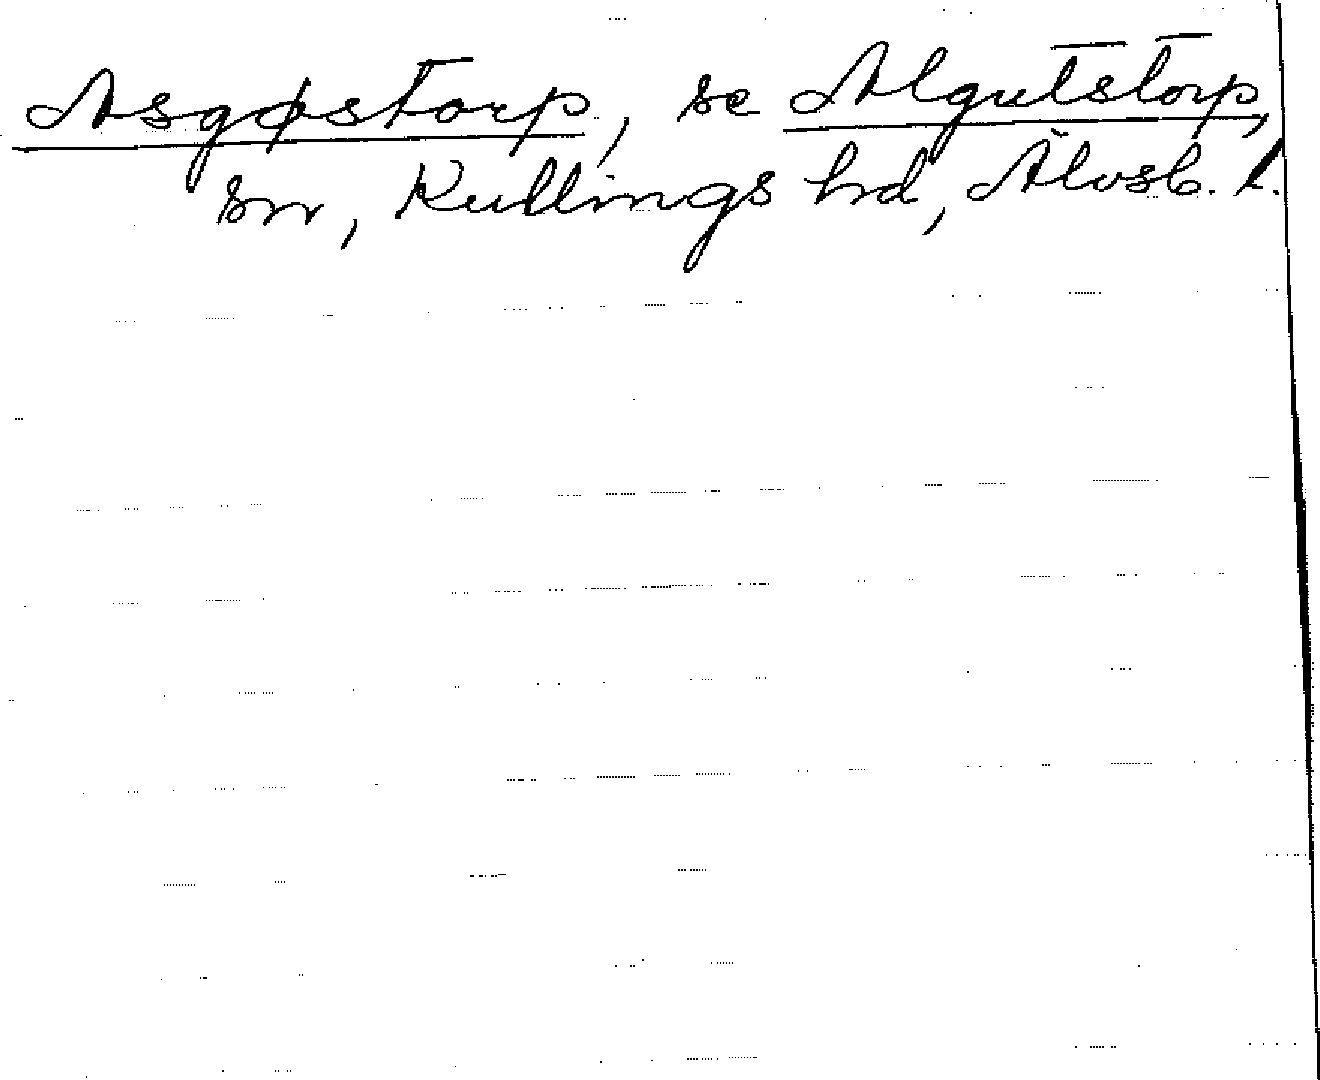 Asgøstorp, se Algutstorp,
sn, Kullings hd, Älvsb. l.